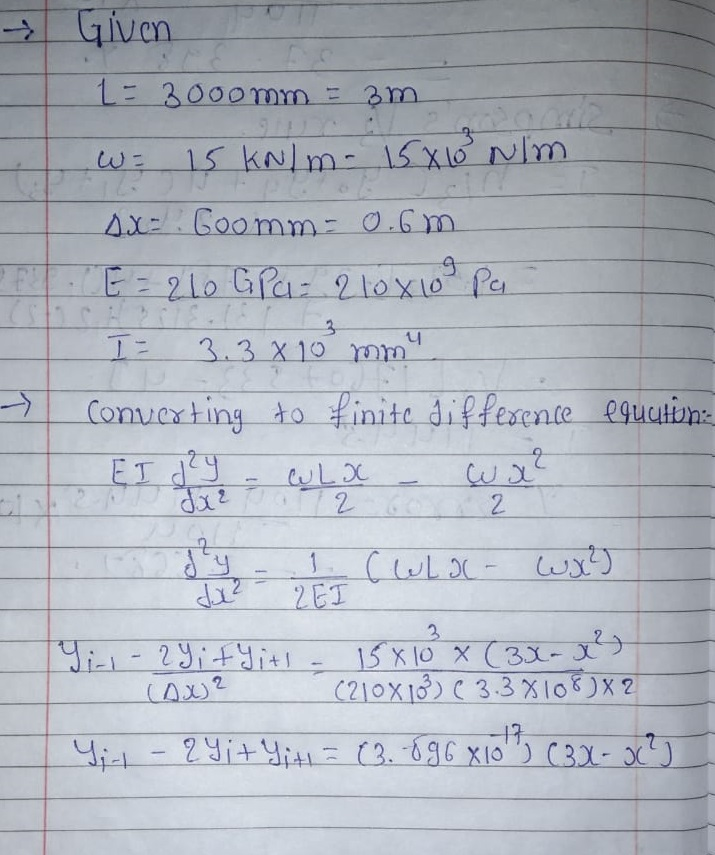 → Given
L = 3000mm = 3m
ω = 15 KN/m = 15×10³ N/m
Δx = 600mm = 0.6m
E = 210 GPa = 210×10⁹ Pa
I = 3.3×10³ mm⁴
→ Converting to finite difference equation:-
EI d²y/dx² = ωLx/2 - ωx²/2
d²y/dx² = 1/2EI (ωLx - ωx²)
yᵢ₋₁ - 2yᵢ + yᵢ₊₁/(Δx)² = 15×10³ × (3x - x²)/(210×10³)(3.3×10⁸)×2
yᵢ₋₁ - 2yᵢ + yᵢ₊₁ = (3.896×10⁻¹⁷)(3x - x²)